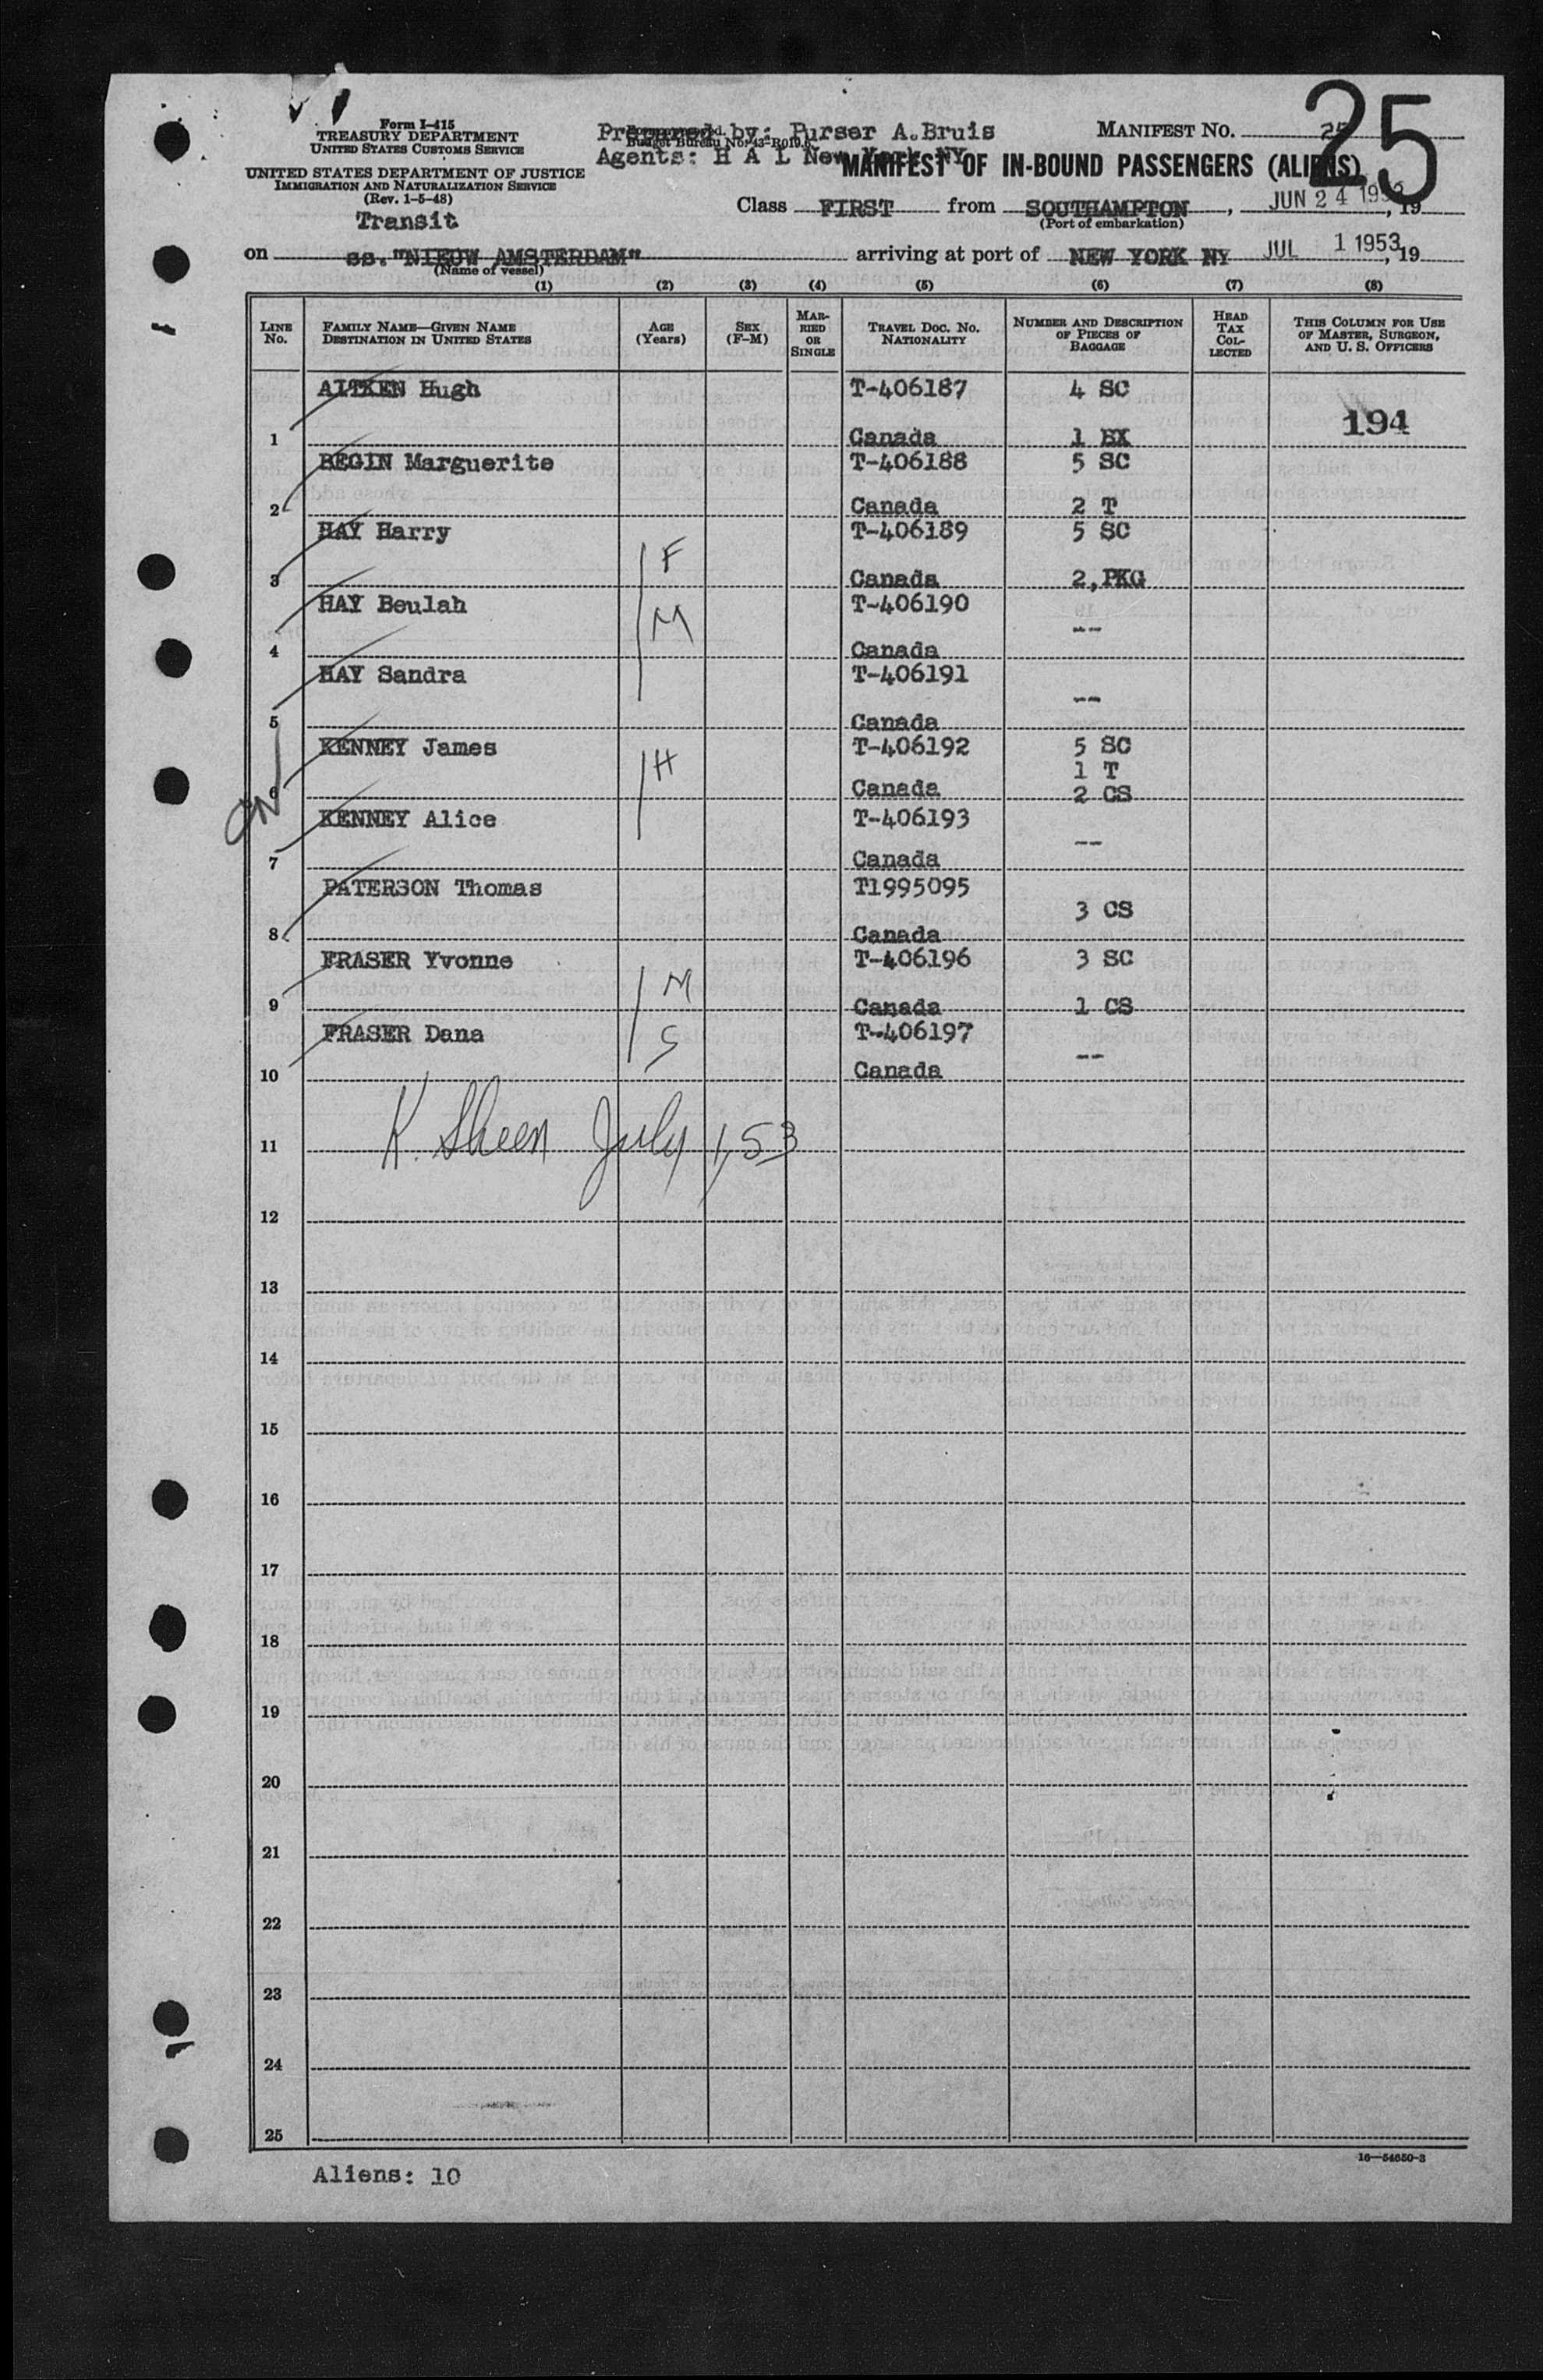 25
Form I-415
TREASURY DEPARTMENT
UNITED STATES CUSTOMS SERVICE
UNITED STATES DEPARTMENT OF JUSTICE
IMMIGRATION AND NATURALIZATION SERVICE
(Rev. 1-5-48)
Transit
Prepared by: Purser A.Bruis
Agents: H A L New York NY
MANIFEST NO. 25
MANIFEST OF IN-BOUND PASSENGERS (ALIENS)
Class FIRST from SOUTHAMPTON, JUN 24 1953, 19
(Port of embarkation)
on ss. "NIEUW AMSTERDAM" arriving at port of NEW YORK NY JUL 1 1953, 19
(Name of vessel)
(1) (2) (3) (4) (5) (6) (7) (8)
LINE NO. FAMILY NAME—GIVEN NAME DESTINATION IN UNITED STATES AGE (Years) SEX (F-M) MARRIED OR SINGLE TRAVEL DOC. NO. NATIONALITY NUMBER AND DESCRIPTION OF PIECES OF BAGGAGE HEAD TAX COLLECTED THIS COLUMN FOR USE OF MASTER, SURGEON, AND U. S. OFFICERS
AITKEN Hugh T-406187 4 SC
194
1 Canada 1 BX
BEGIN Marguerite T-406188 5 SC
2 Canada 2 T
HAY Harry T-406189 5 SC
F
3 Canada 2,PKG
HAY Beulah T-406190
M --
4 Canada
HAY Sandra T-406191
--
5 Canada
KENNEY James T-406192 5 SC
H 1 T
6 Canada 2 CS
KENNEY Alice T-406193
--
7 Canada
PATERSON Thomas T1995095
3 CS
8 Canada
FRASER Yvonne T-406196 3 SC
M
9 Canada 1 CS
FRASER Dana T-406197
S --
10 Canada
K. Sheen July 1, 53
11
12
13
14
15
16
17
18
19
20
21
22
23
24
25
16—54650-3
Aliens: 10